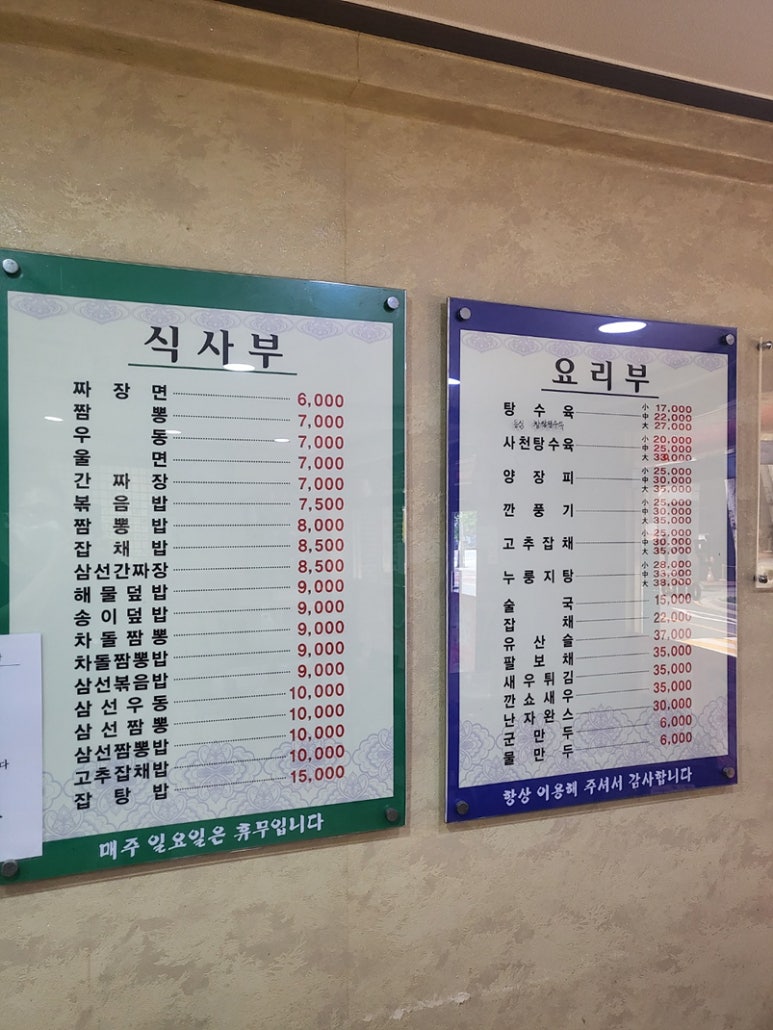 식사부
짜장면 6,000
짬뽕 7,000
우동 7,000
울면 7,000
간짜장 7,000
볶음밥 7,500
짬뽕밥 8,000
잡채밥 8,500
삼선간짜장 8,500
해물덮밥 9,000
송이덮밥 9,000
차돌짬뽕 9,000
차돌짬뽕밥 9,000
삼선볶음밥 9,000
삼선우동 10,000
삼선짬뽕 10,000
삼선짬뽕밥 10,000
고추잡채밥 10,000
잡탕밥 15,000
매주 일요일은 휴무입니다
요리부
탕수육 小 17,000
中 22,000
大 27,000
사천탕수육 小 20,000
中 25,000
大 33,000
양장피 小 25,000
中 30,000
大 35,000
깐풍기 小 25,000
中 30,000
大 35,000
고추잡채 小 25,000
中 30,000
大 35,000
누룽지탕 小 28,000
中 33,000
大 38,000
술국 15,000
잡채 22,000
유산슬 37,000
팔보채 35,000
새우튀김 35,000
깐쇼새우 35,000
난자완스 30,000
군만두 6,000
물만두 6,000
항상 이용해 주셔서 감사합니다
다